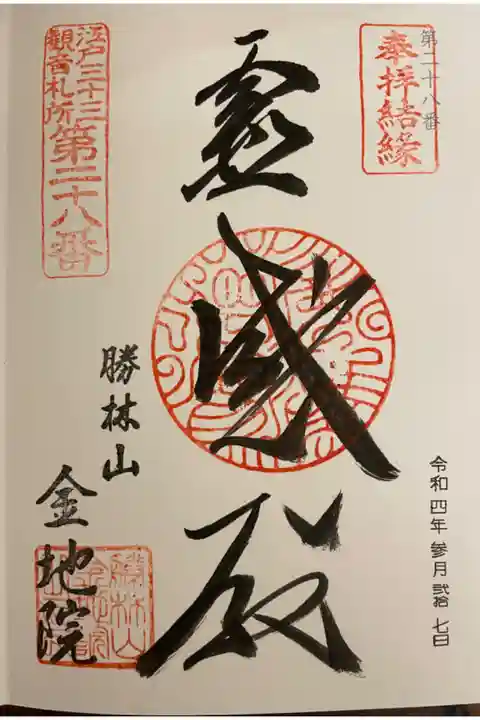 第二十八番
奉拝結縁
令和四年参月弐拾七日
霊感殿
江戸三十三
観音札所
第二十八番
勝林山
金地院